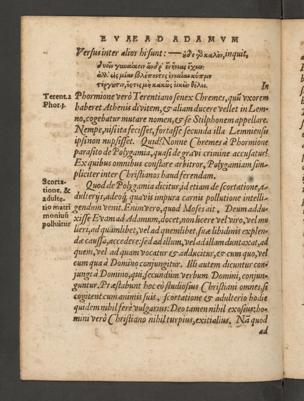 EVAE AD ADAMUM
Versus inter alios hi sunt: — ἐδὲ γὸ καλὸν, inquit,
δυοῖν γυναίκοιν ἄνδρ᾽ ἕν᾽ ἡνίας ἔχειν·
ἀλλ᾽ εἰς μίαν βλέποντες
στέργουσιν, ὅστις μὴ κακῶς οἰκεῖν θέλει.
In
Terent. 2
Phor. 3.
Phormione verò Terentiano senex Chremes, quũ vxorem
haberet Athenis divitem, & aliam ducere vellet in Lem-
no, cogebatur mutare nomen, & se Stilphonem appellare.
Nempe, nisi ita fecisset, fortasse secunda illa Lemniensis
ipsi non nupsisset. Quid? Nonne Chremes à Phormione
parasito de Polygamia, quasi de gravi crimine accusatur?
Ex quibus omnibus constare arbitror, Polygamiam sim-
pliciter inter Christianos haud ferendam.
Scorta-
tione, &
adulte-
rio matri
moniũ
polluitur
Quod de Polygamia dicitur, id etiam de scortatione, a-
dulterijs, adeoq́; quavis impura carnis pollutione intelli-
gendum venit. Enimvero, quod Moses ait, Deum addu-
xisse Evam ad Adamum, docet, non licere vel viro, vel mu-
lieri, ad quamlibet, vel ad quemlibet, suæ libidinis explen-
dæ caussa, accedere: sed ad illum, vel ad illam duntaxat, ad
quem, vel ad quam vocatur & adducitur, & cum quo, vel
cum qua à Domino conjungitur. Illi autem dicuntur con-
jungi à Domino, qui, secundum verbum Domini, conjun-
guntur. Præstabunt hoc eò studiosius Christiani omnes, si
cogitent cum animis suis, scortatione & adulterio hodie
quidem nihil ferè vulgarius: Deo tamen nihil exosius: ho-
mini verò Christiano nihil turpius, exitialius. Nã quod
ad